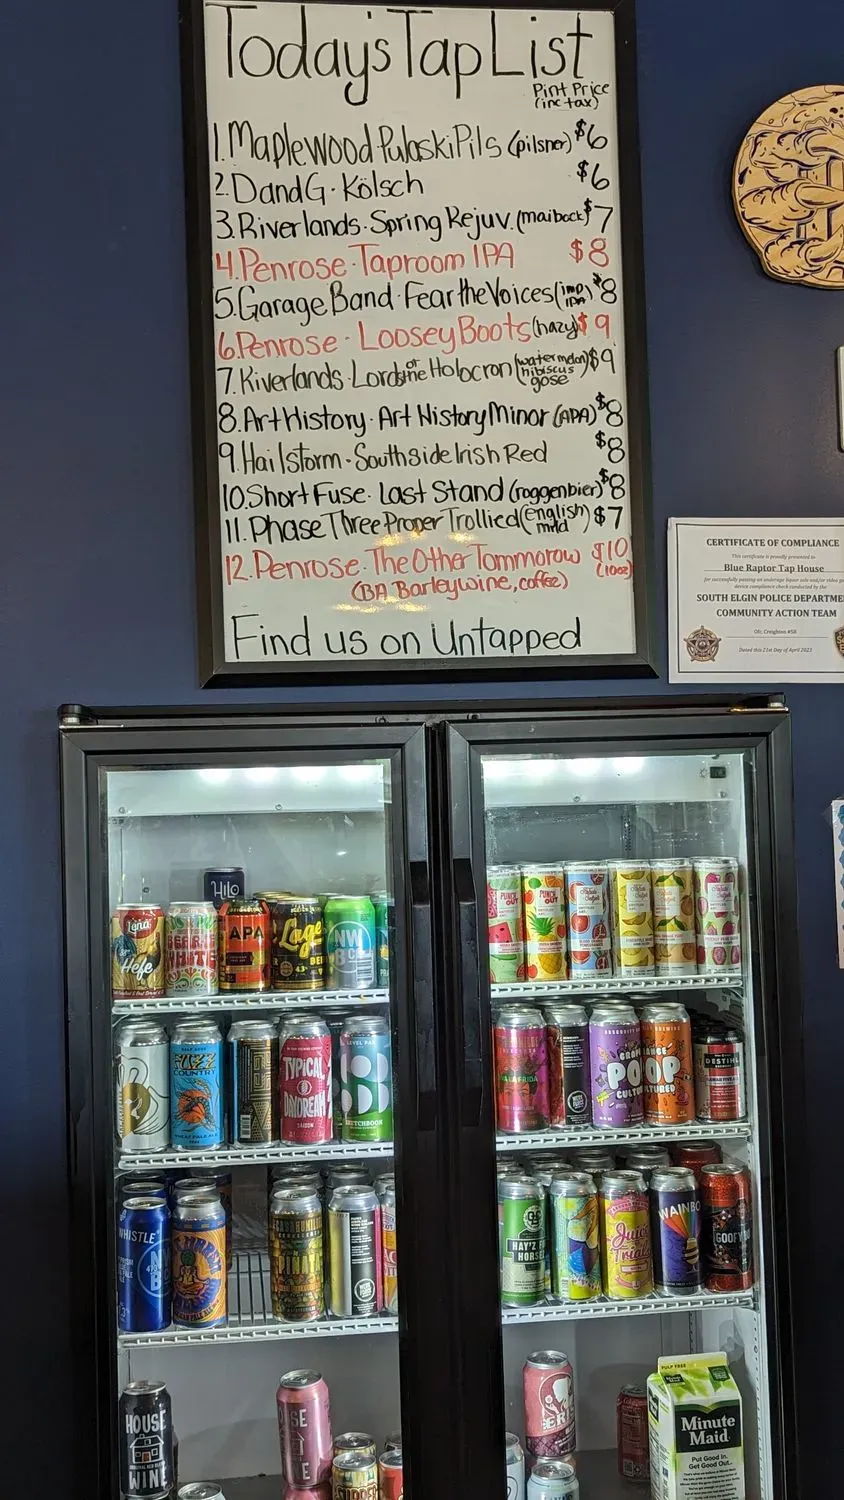 Today's Tap List
Pint Price
(inc tax)
1. Maplewood Pulaski Pils (pilsner) $6
2. DandG · Kölsch $6
3. Riverlands · Spring Rejuv. (maibock) $7
4. Penrose · Taproom IPA $8
5. Garage Band · Fear the Voices (imp IPA) $8
6. Penrose · Loosey Boots (hazy) $9
7. Riverlands · Lord of the Holocron (watermelon hibiscus gose) $9
8. Art History · Art History Minor (APA) $8
9. Hailstorm - Southside Irish Red $8
10. Short Fuse · Last Stand (roggenbier) $8
11. Phase Three Proper Trollied (english mild) $7
12. Penrose · The Other Tommorow $10
(BA Barleywine, coffee) (10oz)
Find us on Untapped
CERTIFICATE OF COMPLIANCE
This certificate is proudly presented to
Blue Raptor Tap House
for successfully passing an underage liquor sale and/or video
device compliance check conducted by the
SOUTH ELGIN POLICE DEPARTME
COMMUNITY ACTION TEAM
Ofc. Creighton #58
Dated this 21st Day of April 2023
Hilo
Hefe
APA
Lager
NW
BC
PUNCH OUT
PUNCH OUT
FUZZ
COUNTRY
TYPICAL
DAYDREAM
LEVEL PAR
SKETCHBOOK
LA FRIDA
POOP
CULTURED
DESTIHL
WHISTLE
NW
BC
HAY'Z FO
HORSE
WAINBO
GOOFY
HOUSE
WINE
PULP FREE
Minute
Maid
Put Good In.
Get Good Out.